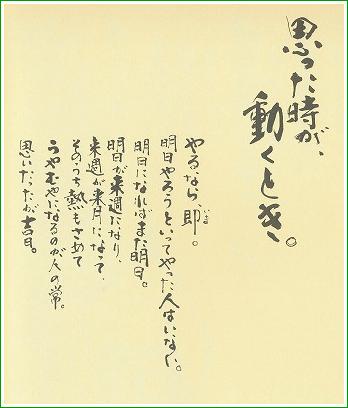 思った時が、
動くとき。
やるなら、即。
明日やろうといってやった人はいない。
明日になればまた明日。
明日が来週になり、
来週が来月になって、
そのうち熱もさめて
うやむやになるのが人の常。
思いたったが吉日。